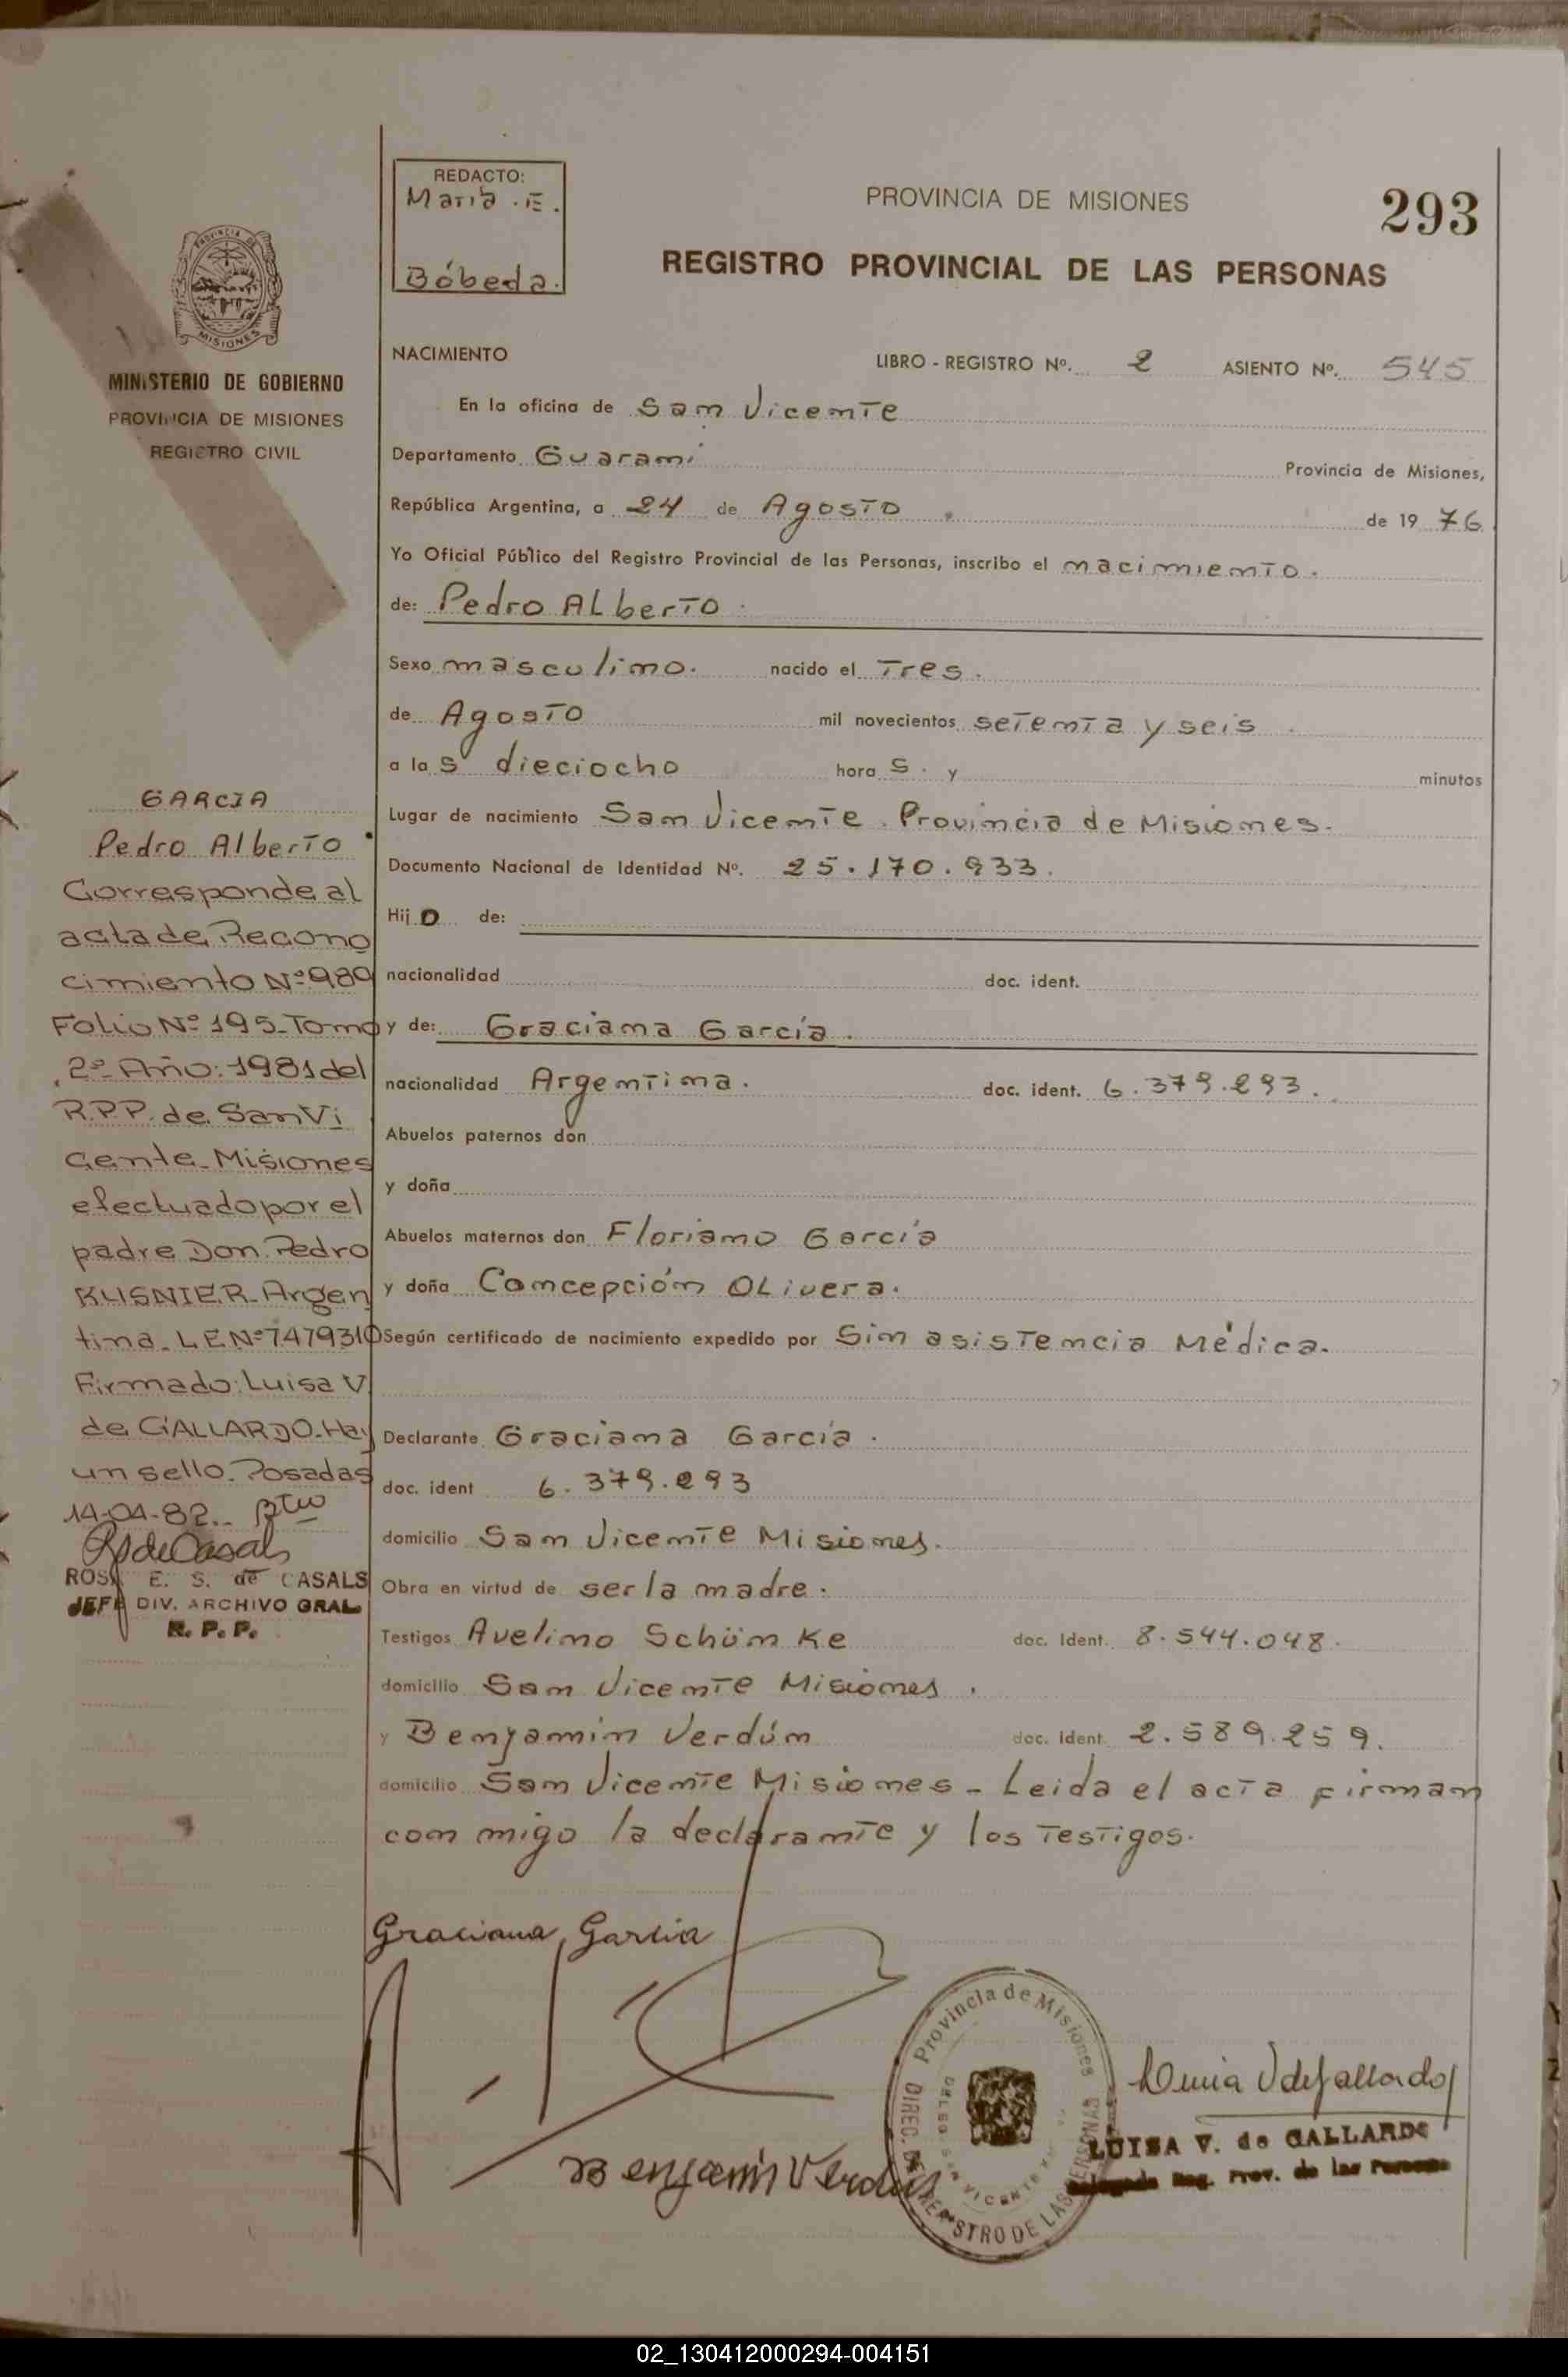 REDACTO:
Maria . E.
Bóbeda.
PROVINCIA DE MISIONES
293
REGISTRO PROVINCIAL DE LAS PERSONAS
PROVINCIA DE
MISIONES
MINISTERIO DE GOBIERNO
PROVINCIA DE MISIONES
REGISTRO CIVIL
NACIMIENTO LIBRO - REGISTRO Nº. 2 ASIENTO Nº. 545
En la oficina de San Vicente
Departamento Guarani Provincia de Misiones,
República Argentina, a 24 de Agosto de 19 76
Yo Oficial Público del Registro Provincial de las Personas, inscribo el nacimiento.
de: Pedro ALberto.
Sexo masculino. nacido el Tres.
de Agosto mil novecientos setenta y seis.
a las dieciocho horas. y minutos
Lugar de nacimiento San Vicente. Provincia de Misiones.
Documento Nacional de Identidad Nº. 25.170.933.
Hijo de:
nacionalidad doc. ident.
y de: Graciana García.
nacionalidad Argentina. doc. ident. 6.379.293.
Abuelos paternos don
y doña
Abuelos maternos don Floriano García
y doña Concepción OLivera.
Según certificado de nacimiento expedido por Sin asistencia Médica.
Declarante Graciana García.
doc. ident 6.379.293
domicilio San Vicente Misiones.
Obra en virtud de ser la madre.
Testigos Avelino Schünke doc. Ident. 8.544.048.
domicilio San Vicente Misiones.
y Benjamin Verdún doc. Ident. 2.589.259.
domicilio San Vicente Misiones - Leida el acta firman
con migo la declarante y los testigos.
GARCIA
Pedro Alberto
Corresponde al
acta de Recono
cimiento Nº 989
Folio Nº 195-Tomo
2º Año: 1981 del
R.P.P. de San Vi
cente-Misiones
efectuado por el
padre Don. Pedro
KUSNIER-Argen
tina. L.E.Nº 7479310
Firmado: Luisa V.
de GALLARDO-Hay
un sello. Posadas
14-04-82..
RSdeCasals
ROSA E. S. de CASALS
JEFE DIV. ARCHIVO GRAL.
R. P. P.
Graciana García
Benjamin Verdun
Provincia de Misiones
DIREC. DE REGISTRO DE LAS PERSONAS
DELEG. SAN VICENTE
Luisa V de Gallardo
LUISA V. de GALLARDO
Delegada Reg. Prov. de las Personas
02_130412000294-004151